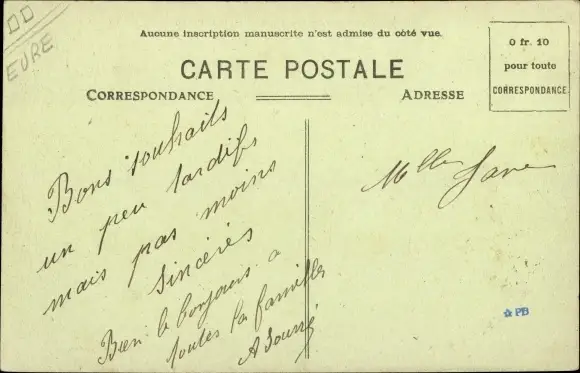 EURE
Aucune inscription manuscrite n'est admise du côté vue.
CARTE POSTALE
0 fr. 10
pour toute
CORRESPONDANCE
CORRESPONDANCE
ADRESSE
Bons souhaits
un peu tardifs
mais pas moins
sincères
Bien le bonjours a
toutes la famille
Melle
PB